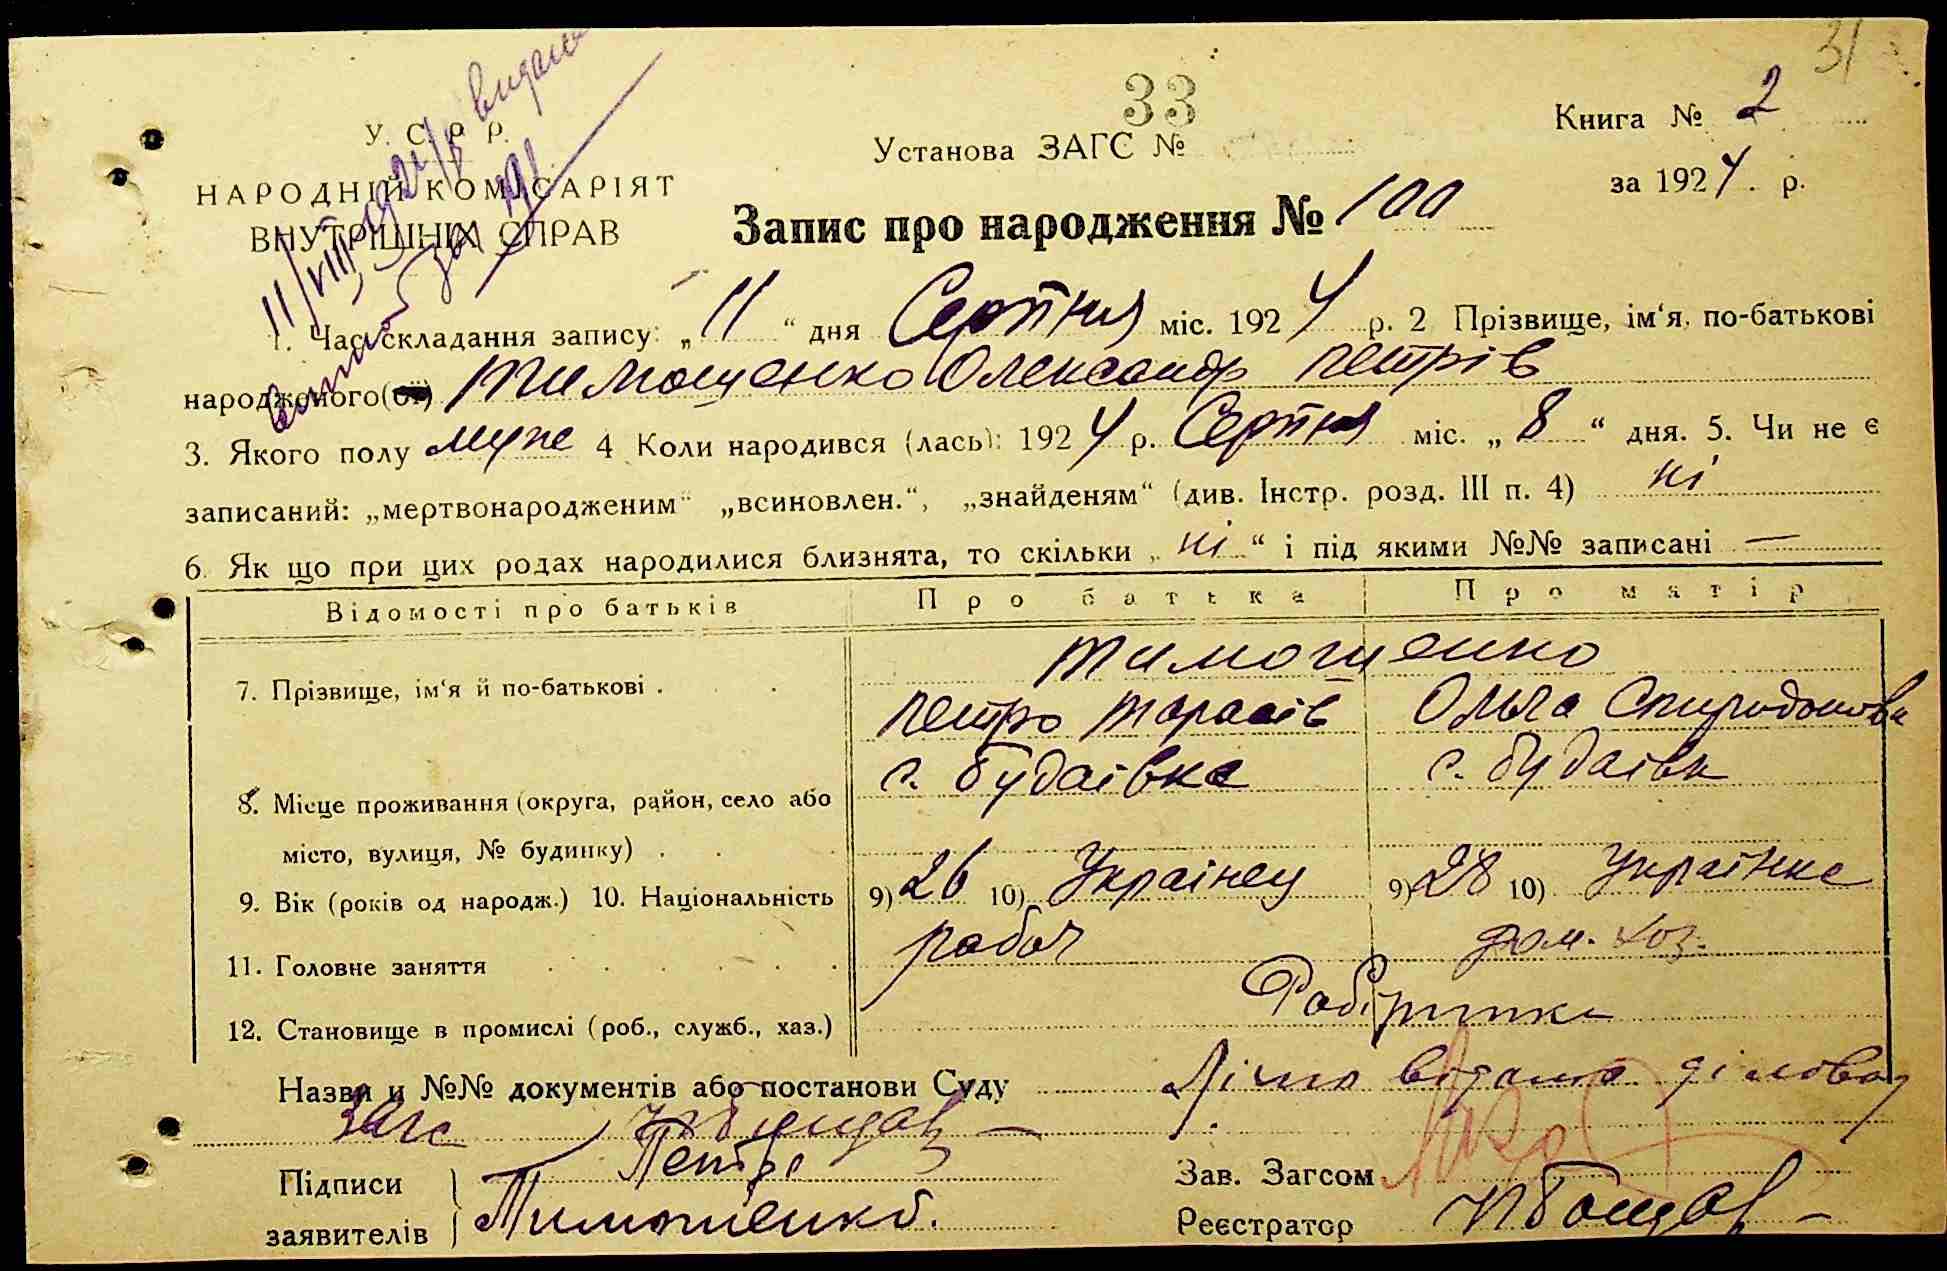 31
33
У. С. Р. Р.
НАРОДНІЙ КОМІСАРІЯТ
ВНУТРІШНІХ СПРАВ
Установа ЗАГС №
Книга № 2
за 1924. р.
Запис про народження № 100
1. Час складання запису: „11“ дня Серпня міс. 1924 р. 2 Прізвище, ім‘я, по-батькові
народженого(ої) Тимощенко Олександр Петрів
3. Якого полу муже 4 Коли народився (лась): 1924 р. Серпня міс. „8“ дня. 5. Чи не є
записаний: „мертвонародженим“ „всиновлен.“, „знайденям“ (див. Інстр. розд. III п. 4) ні
6. Як що при цих родах народилися близнята, то скільки „ні“ і під якими №№ записані —
Відомості про батьків Про батька Про матір
Тимощенко
7. Прізвище, ім‘я й по-батькові . Петро Тарасів Ольга Спиридонова
с. Будаівка с. Будаівка
8. Місце проживання (округа, район, село або
місто, вулиця, № будинку) .
9. Вік (років од народж.) 10. Національність 9) 26 10) Украінец 9) 28 10) Украінка
11. Головне заняття робоч дом. хоз.
12. Становище в промислі (роб., служб., хаз.) Робітника
Назви и №№ документів або постанови Суду Лічно відомо діловод
загс
Підписи Петро
заявителів Тимошенко.
Зав. Загсом
Реєстратор
11/VIII 1924 видано
за 191